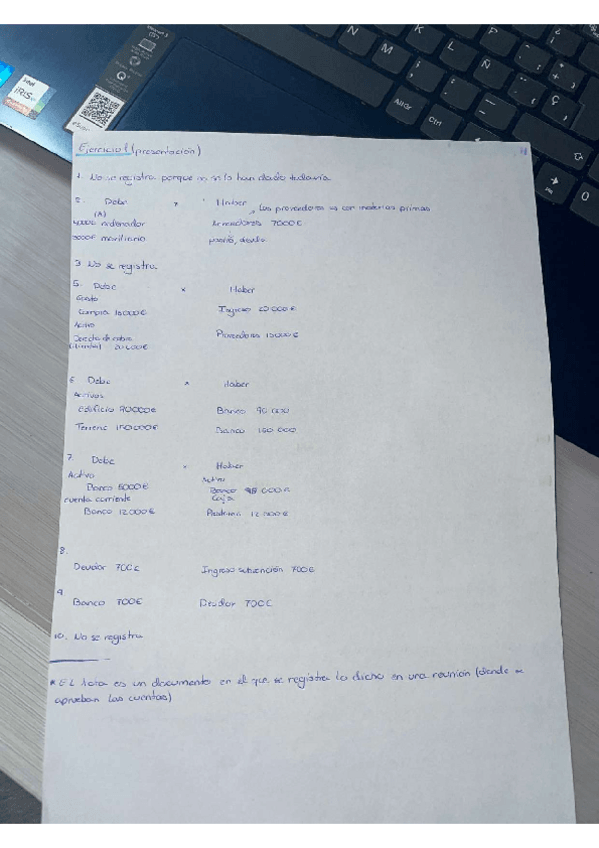 Ejercicio 1 (presentación)
1. No se registra porque no se lo han dado todavía
2. Debe x Haber
Los proveedores son materias primas
(A)
4000€ ordenador Acreedores 7000€
3000€ mobiliario
3 No se registra.
5. Debe x Haber
Gasto
Compra 15000€ Ingreso 20000€
Activo
Derecho de cobro Proveedores 15000€
20.000€
6 Debe x Haber
Activos
Edificio 90000€ Banco 90 000
Terreno 150000€ Banco 150 000
7. Debe x Haber
Activo Activo
Banco 6000€ Banco
cuenta corriente Caja
Banco 12000€ 12 000€
8.
Deudor 700€ Ingreso subvención 700€
9
Banco 700€ Deudor 700€
10. No se registra
* EL Acta es un documento en el que se registra lo dicho en una reunión (donde se
aprueban las cuentas)
N
M
K
L
Ñ
P
Ç
AltGr
Ctrl
0
intel
iRIS